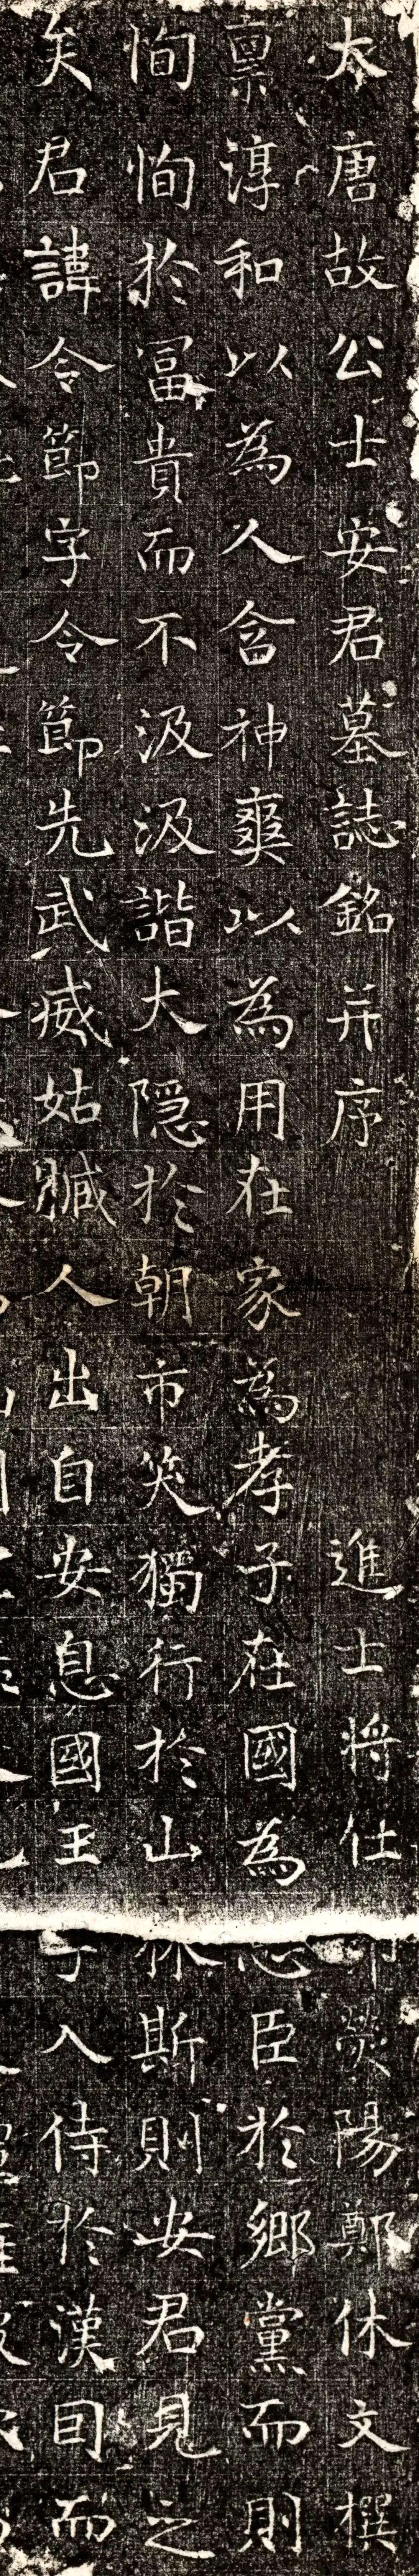 大唐故公士安君墓誌銘并序 進士將仕郎滎陽鄭休文撰
禀淳和以為人含神爽以為用在家為孝子在國為忠臣於鄉黨而則
恂恂於冨貴而不汲汲諧大隱於朝市笑獨行於山林斯則安君見之
矣君諱令節字令節先武威姑臧人出自安息國王子入侍於漢因而